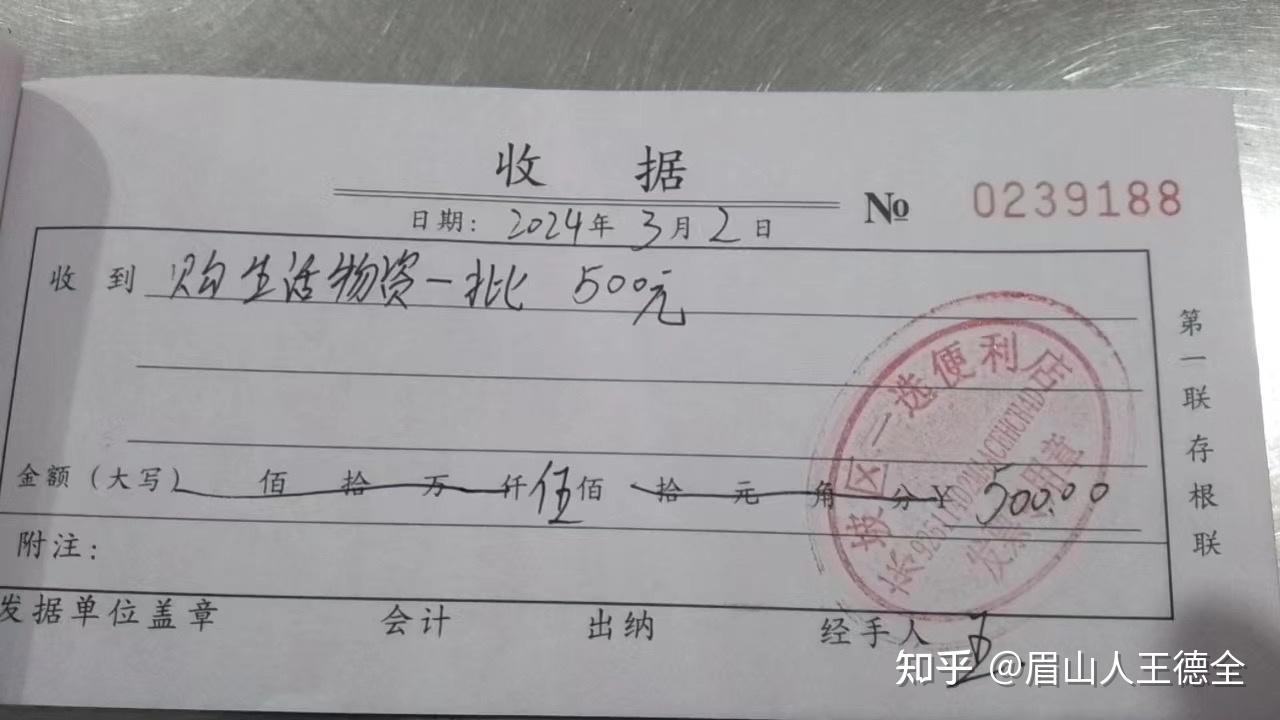 收 据
日期: 2024年 3月 2日
№ 0239188
收 到 购生活物资一批 500元
金额(大写) 佰 拾 万 仟 伍佰 拾 元 角 分 ¥ 500.00
附注:
发据单位盖章 会计 出纳 经手人
第一联存根联
坡区一选便利店
发票专用章
知乎 @眉山人王德全